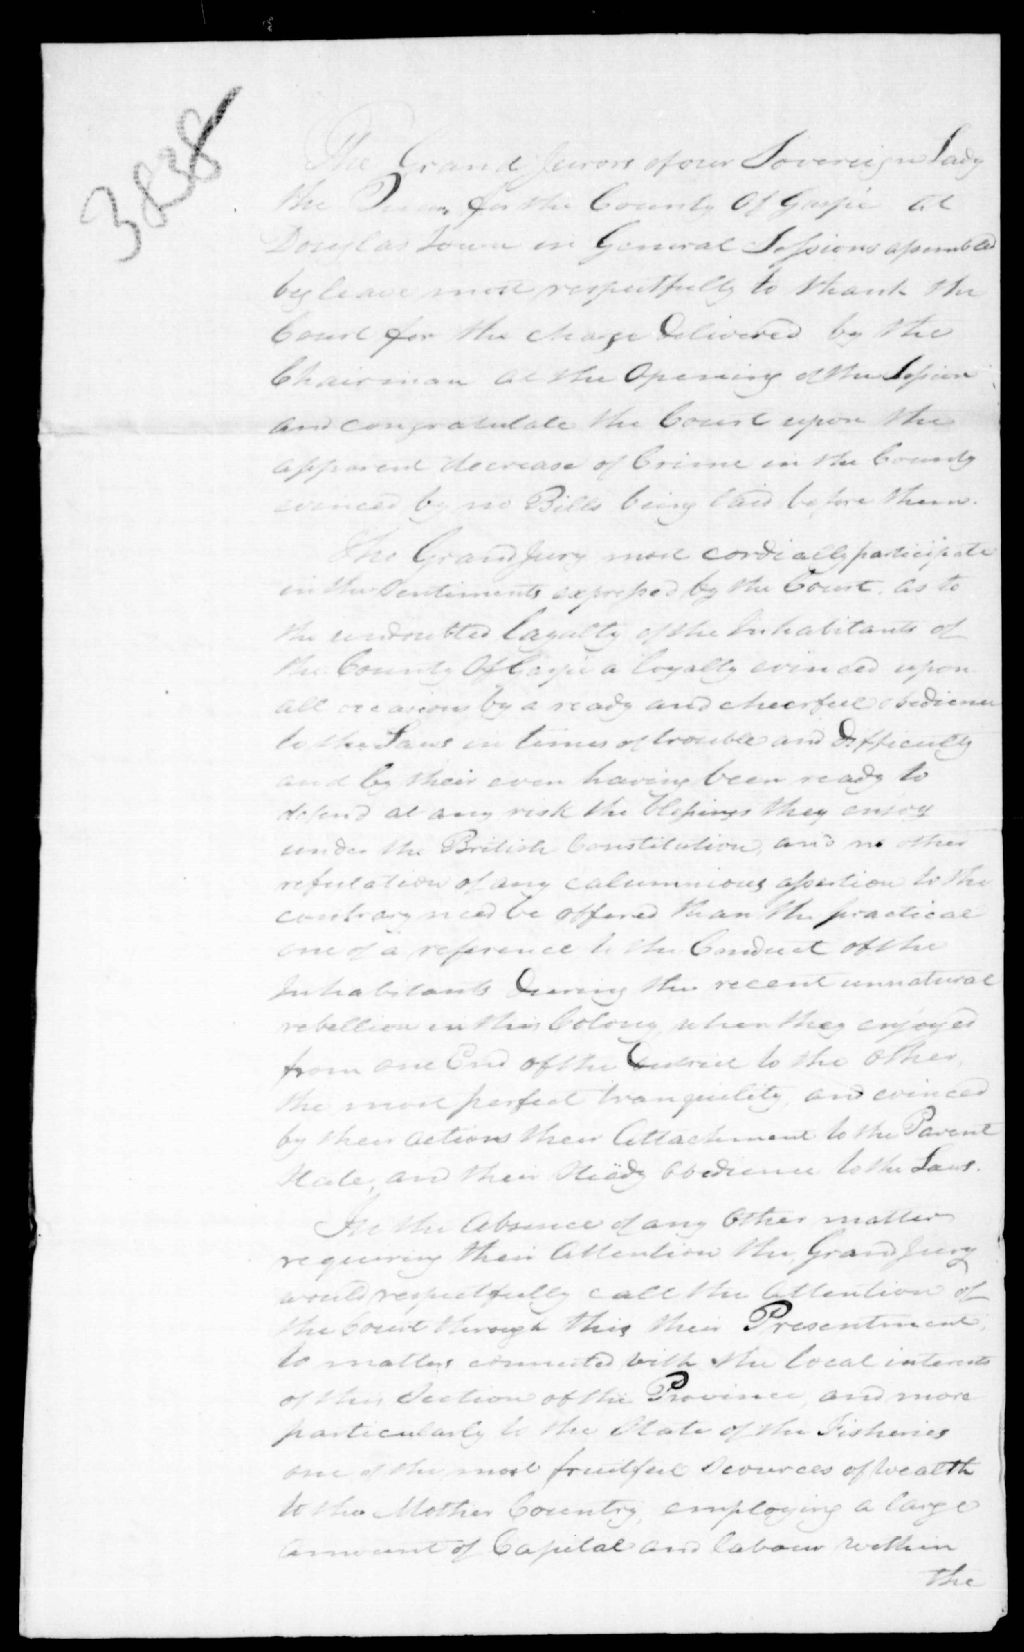 3838
The Grand Jurors of our Sovereign Lady
the Queen for the County Of Gaspé at
Douglas Town in General Sessions assembled
beg leave most respectfully to thank the
Court for the charge Delivered by the
Chairman at the Opening of the Session
and congratulate the Court upon the
apparent decrease of Crime in the County
evinced by no Bills being laid before them.
The Grand Jury most cordially participate
in the Sentiments expressed by the Court. as to
the undoubted Loyalty of the Inhabitants of
the County Of Gaspé a loyalty evinced upon
all occasions by a ready and cheerful obedience
to the Laws in times of trouble and Difficulty
and by their even having been ready to
defend at any risk the blessings they enjoy
under the British Constitution, and no other
refutation of any calumnious assertion to the
contrary need be offered than the practical
one of a reference to the Conduct of the
Inhabitants During the recent unnatural
rebellion in this Colony, when they enjoyed
from one End of the District to the Other,
the most perfect tranquility, and evinced
by their actions their Attachment to the Parent
State, and their steady obedience to the Laws.
In the Absence of any Other matter
requiring their Attention the Grand Jury
would respectfully call the Attention of
the Court through this their Presentment,
to matters connected with the local interests
of this Section of the Province, and more
particularly to the State of the Fisheries
one of the most fruitful Scources of Wealth
to the Mother Country, employing a large
amount of Capital and labour within
the